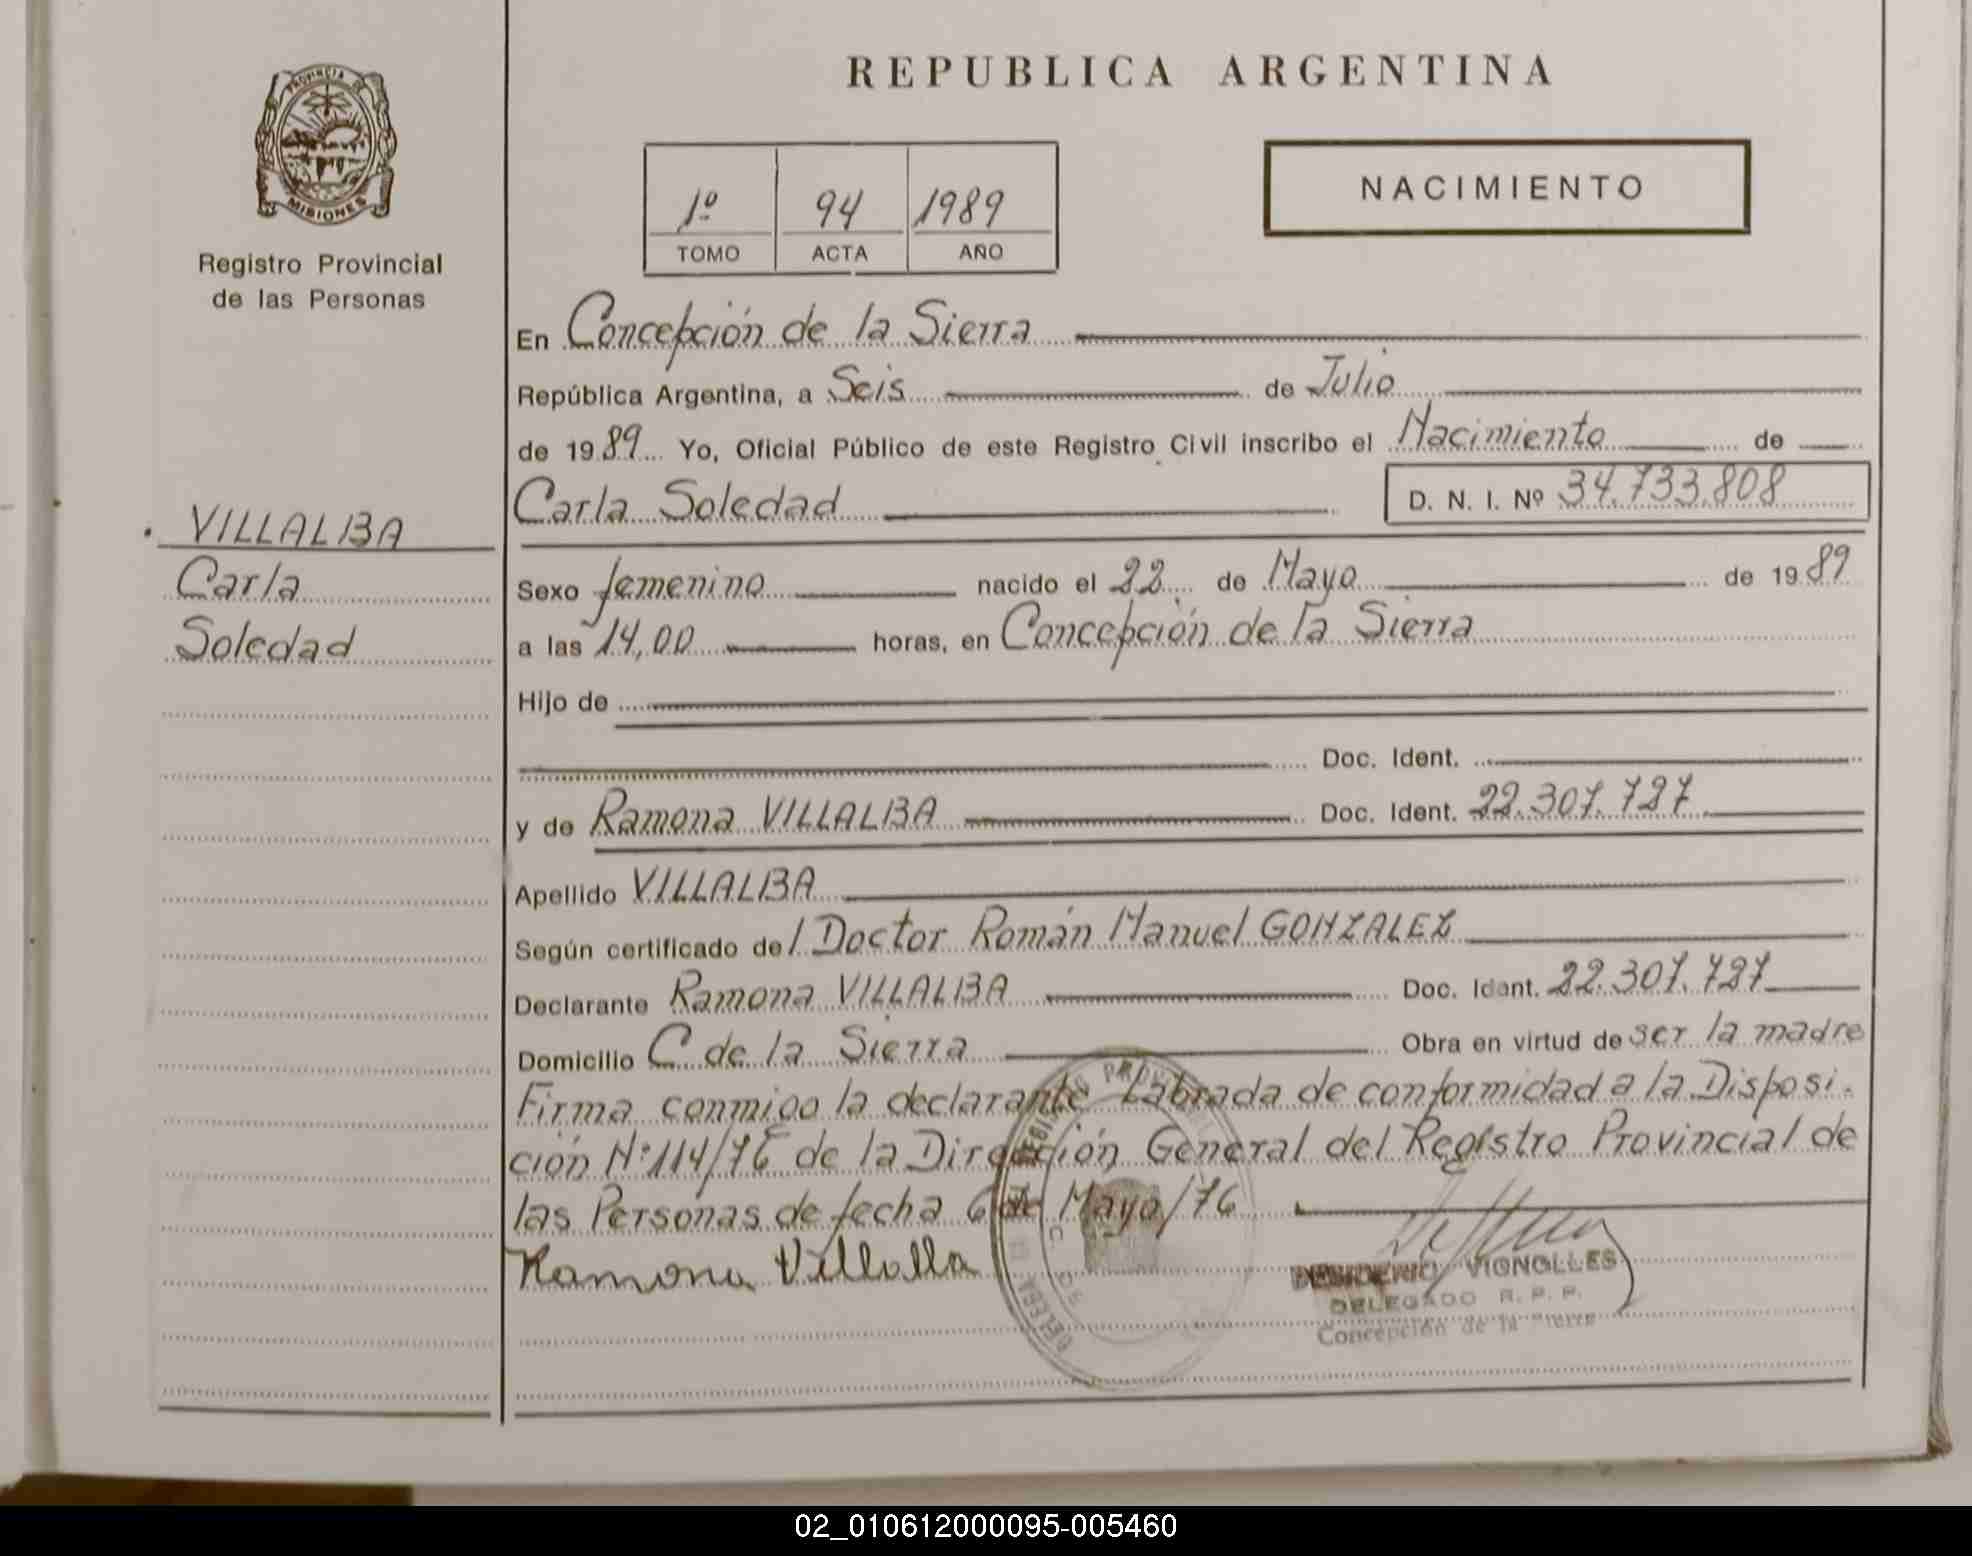 REPUBLICA ARGENTINA
PROVINCIA DE
MISIONES
Registro Provincial
de las Personas
1º 94 1989
TOMO ACTA AÑO
NACIMIENTO
En Concepción de la Sierra
República Argentina, a Seis de Julio
de 1989 Yo, Oficial Público de este Registro Civil inscribo el Nacimiento de
Carla Soledad D. N. I. Nº 34.733.808
VILLALBA
Carla
Soledad
Sexo femenino nacido el 22 de Mayo de 1989
a las 14,00 horas, en Concepción de la Sierra
Hijo de
Doc. Ident.
y de Ramona VILLALBA Doc. Ident. 22.307.727
Apellido VILLALBA
Según certificado del Doctor Román Manuel GONZALEZ
Declarante Ramona VILLALBA Doc. Ident. 22.307.727
Domicilio C. de la Sierra Obra en virtud de ser la madre
Firma conmigo la declarante Labrada de conformidad a la Disposi-
ción Nº 114/76 de la Dirección General del Registro Provincial de
las Personas de fecha 6 de Mayo/76
Ramona Villalba
DESIDERIO VIGNOLLES
DELEGADO R. P. P.
Concepción de la Sierra
02_010612000095-005460